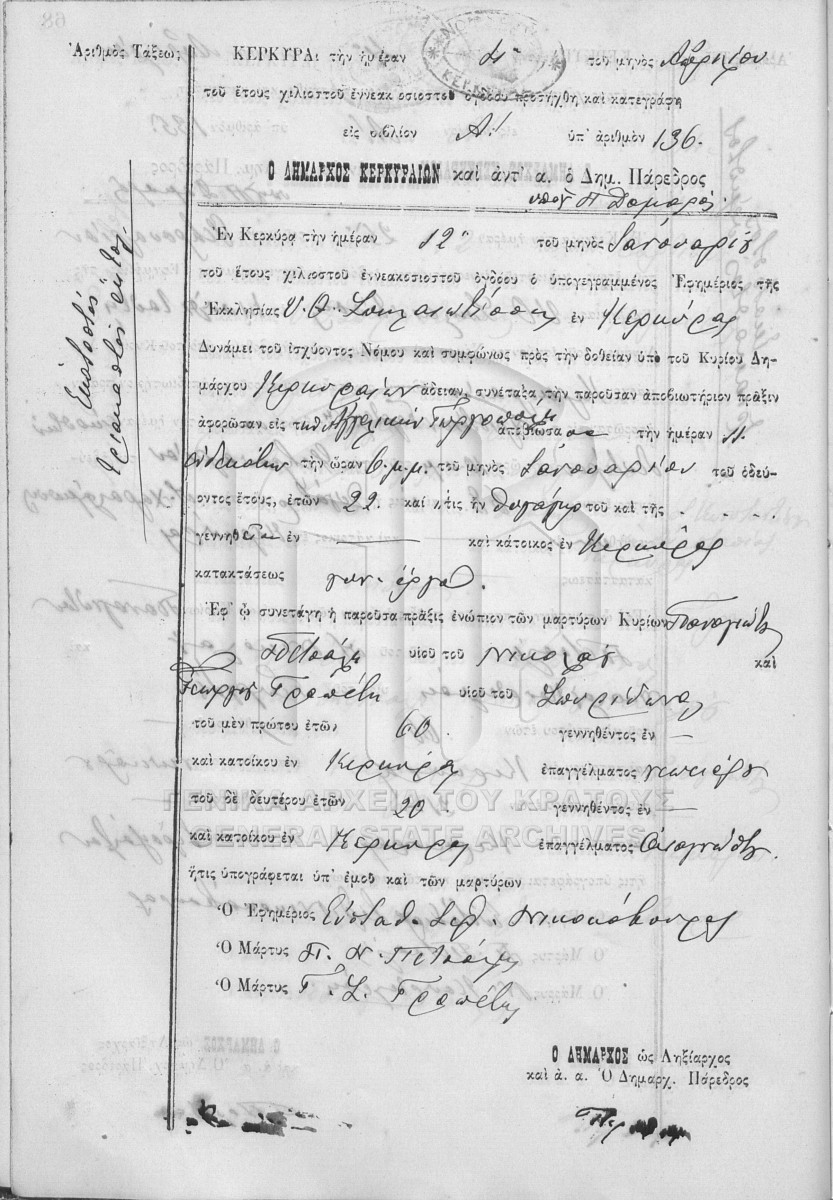 Ἀριθμὸς Τάξεως
ΚΕΡΚΥΡΑι τὴν ἡμέραν 4η τοῦ μηνὸς Ἀπριλίου
τοῦ ἔτους χιλιοστοῦ ἐννεακοσιοστοῦ ὀγδόου προσήχθη καὶ κατεγράφη
εἰς βιβλίον Α' ὑπ' ἀριθμὸν 136.
Ο ΔΗΜΑΡΧΟΣ ΚΕΡΚΥΡΑΙΩΝ καὶ ἀντ' α. ὁ Δημ. Πάρεδρος
Ἑκατοστὸς
τριακοστὸς ἕκτος
Ἐν Κερκύρᾳ τὴν ἡμέραν 12η τοῦ μηνὸς Ἰανουαρίου
τοῦ ἔτους χιλιοστοῦ ἐννεακοσιοστοῦ ὀγδόου ὁ ὑπογεγραμμένος Ἐφημέριος τῆς
Ἐκκλησίας Υ. Θ. Σπηλαιωτίσσης ἐν Κερκύρας
Δυνάμει τοῦ ἰσχύοντος Νόμου καὶ συμφώνως πρὸς τὴν δοθεῖαν ὑπὸ τοῦ Κυρίου Δη-
μάρχου Κερκυραίων ἄδειαν, συνέταξα τὴν παροῦσαν ἀποβιωτήριον πρᾶξιν
ἀφορῶσαν εἰς τὴν Ἀγγελικὴν ἀποβιώσασα τὴν ἡμέραν 11
ἑνδεκάτην τὴν ὥραν 6 μ.μ. τοῦ μηνὸς Ἰανουαρίου τοῦ ὁδεύ-
οντος ἔτους, ἐτῶν 22 καὶ ἥτις ἦν θυγάτηρ τοῦ καὶ τῆς . . . .
γεννηθεῖσα ἐν — καὶ κάτοικος ἐν Κερκύρας
κατακτάσεως
Ἐφ' ᾧ συνετάγη ἡ παροῦσα πρᾶξις ἐνώπιον τῶν μαρτύρων Κυρίων Παναγιώτη
Πετσάλη υἱοῦ τοῦ Νικολάου καὶ
Γεωργίου Γραπέτη υἱοῦ τοῦ Σπυρίδωνος
τοῦ μὲν πρώτου ἐτῶν 60 γεννηθέντος ἐν —
καὶ κατοίκου ἐν Κερκύρας ἐπαγγέλματος
τοῦ δὲ δευτέρου ἐτῶν 20 γεννηθέντος ἐν —
καὶ κατοίκου ἐν Κερκύρας ἐπαγγέλματος
ἥτις ὑπογράφεται ὑπ' ἐμοῦ καὶ τῶν μαρτύρων
Ὁ Ἐφημέριος Εὐσταθ.
Ὁ Μάρτυς Π. Ν. Πετσάλης
Ὁ Μάρτυς Γ. Σ. Γραπέτης
Ο ΔΗΜΑΡΧΟΣ ὡς Ληξίαρχος
καὶ ἀ. α. Ὁ Δημαρχ. Πάρεδρος
ΓΕΝΙΚΑ ΑΡΧΕΙΑ ΤΟΥ ΚΡΑΤΟΥΣ
GENERAL STATE ARCHIVES